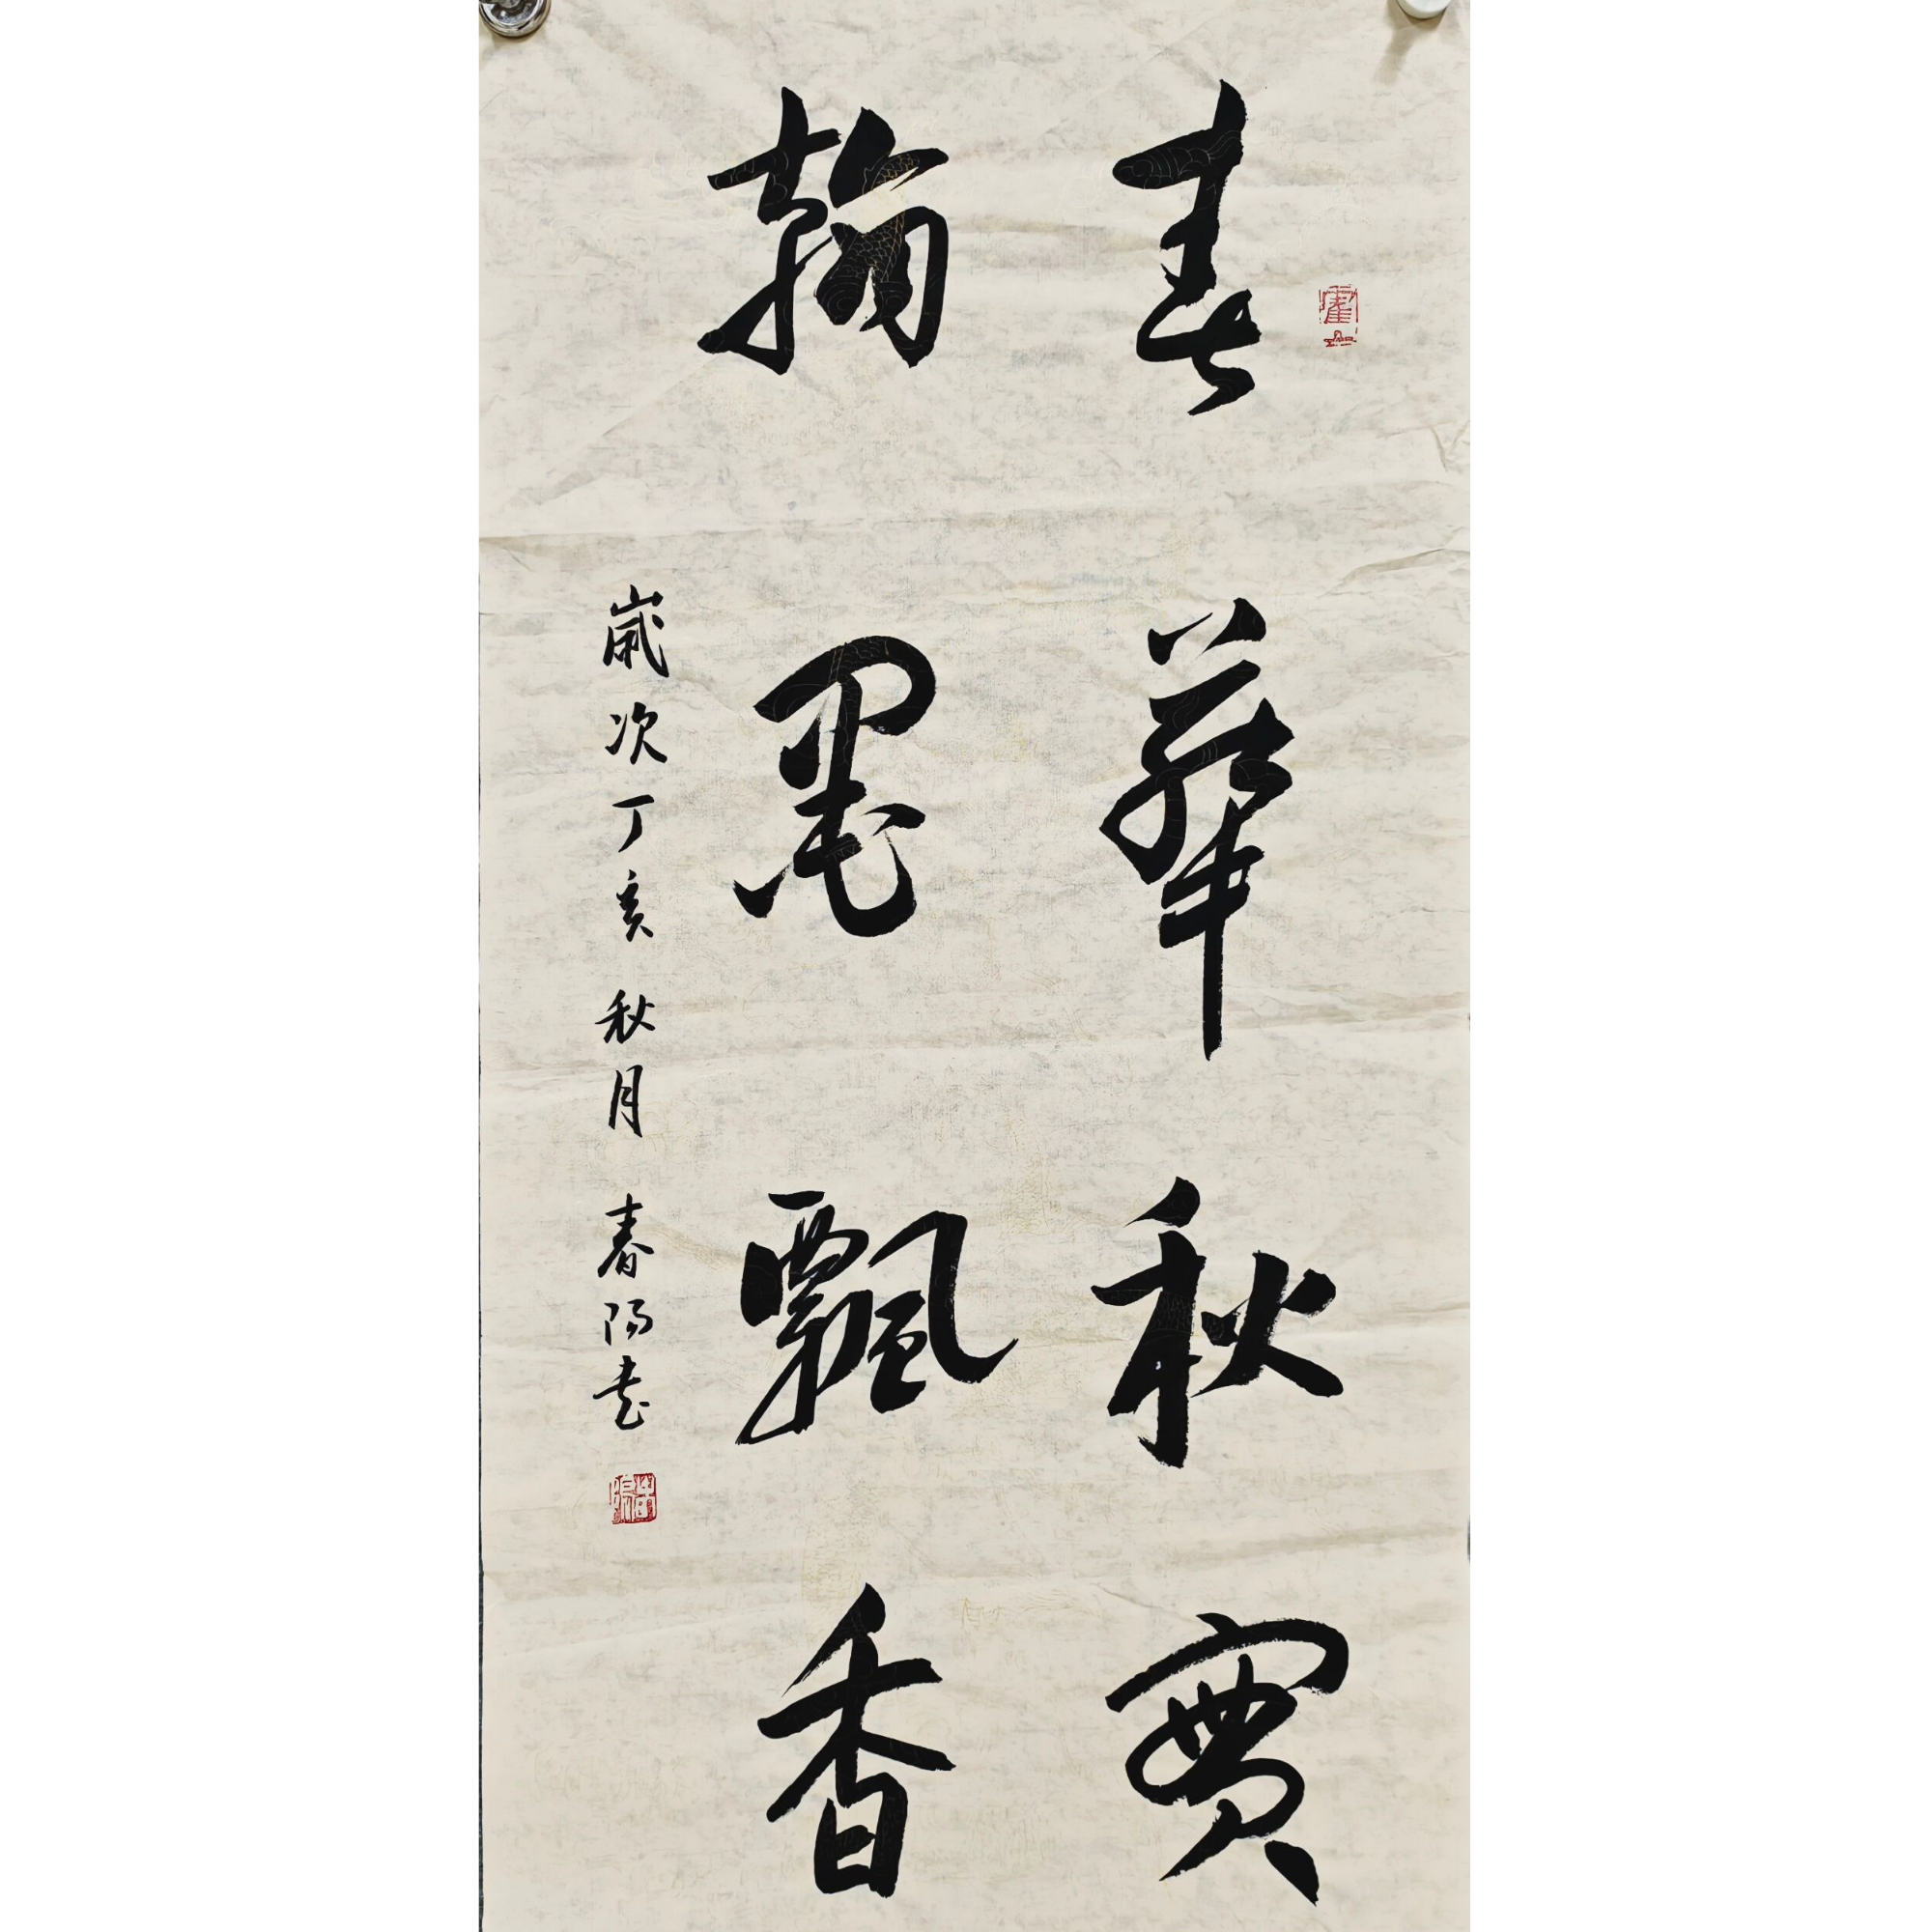 春華秋實
翰墨飄香
歲次丁亥秋月春陽書
霍山
春陽